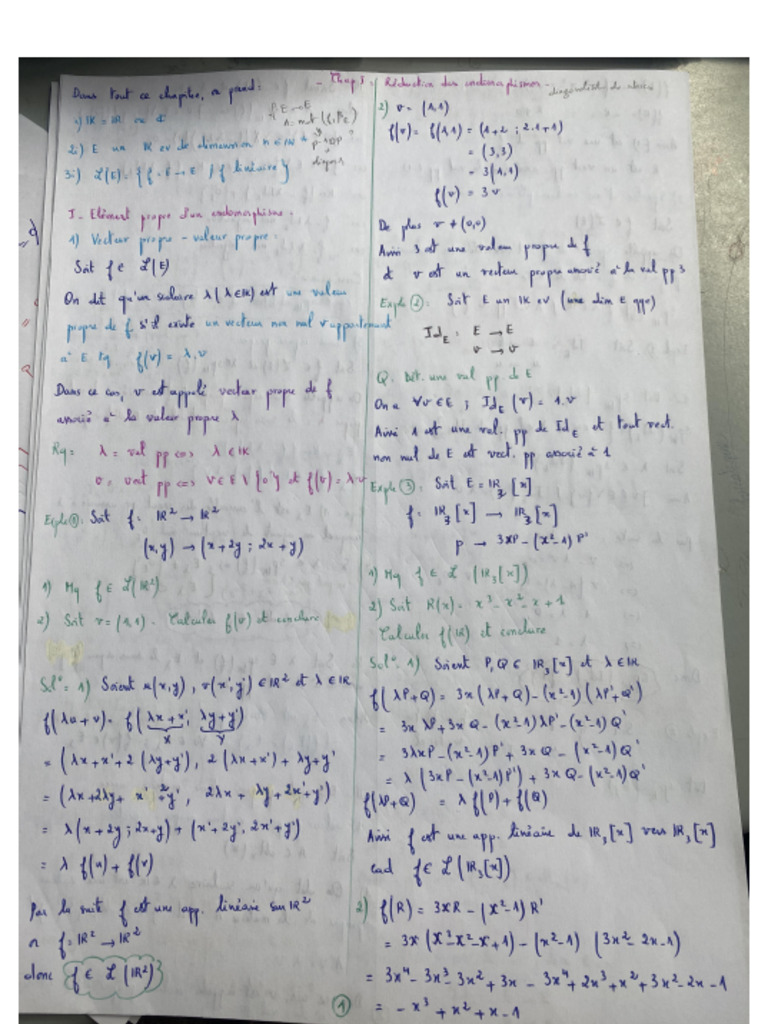 Chap 3 : Réduction des endomorphismes -
Dans tout ce chapitre, on prend :
1) IK = IR ou ℂ
2) E un IK ev de dimension n ∈ IN*
3) ℒ(E) = { f : E → E / f linéaire }
f E → E
I - Elément propre d'un endomorphisme.
1) Vecteur propre - valeur propre.
Soit f ∈ ℒ(E)
On dit qu'un scalaire λ (λ ∈ IK) est une valeur
propre de f s'il existe un vecteur non nul v appartenant
à E tq f(v) = λ.v
Dans ce cas, v est appelé vecteur propre de f
associé à la valeur propre λ
Rq : λ = val pp ⟺ λ ∈ IK
v = vect pp ⟺ v ∈ E \ {0} et f(v) = λv
Exple ① : Soit f : IR² → IR²
(x,y) → (x + 2y ; 2x + y)
1) Mq f ∈ ℒ(IR²)
2) Soit v = (1,1). Calculer f(v) et conclure
Sol° = 1) Soient u(x,y), v(x',y') ∈ IR² et λ ∈ IR
f(λu + v) = f(λx + x', λy + y')
X Y
= (λx + x' + 2(λy + y'), 2(λx + x') + λy + y')
= (λx + 2λy + x' + 2y', 2λx + λy + 2x' + y')
= λ(x + 2y ; 2x + y) + (x' + 2y', 2x' + y')
= λ f(u) + f(v)
Par la suite f est une app. linéaire sur IR²
or f : IR² → IR²
donc f ∈ ℒ(IR²)
2) v = (1,1)
f(v) = f(1,1) = (1+2 ; 2.1+1)
= (3,3)
= 3(1,1)
f(v) = 3v
De plus v ≠ (0,0)
Ainsi 3 est une valeur propre de f
et v est un vecteur propre associé à la val pp 3
Exple ② : Soit E un IK ev (une dim E qqe)
Id_E : E → E
v → v
Q. Dét. une val pp de E
On a ∀v ∈ E ; Id_E(v) = 1.v
Ainsi 1 est une val. pp de Id_E et tout vect.
non nul de E est vect. pp associé à 1
Exple ③ : Soit E = IR₃[x]
f : IR₃[x] → IR₃[x]
P → 3xP - (x²-1)P'
1) Mq f ∈ ℒ(IR₃[x])
2) Soit R(x) = x³ - x² - x + 1
Calculer f(R) et conclure
Sol° : 1) Soient P,Q ∈ IR₃[x] et λ ∈ IR
f(λP+Q) = 3x(λP+Q) - (x²-1)(λP'+Q')
= 3x λP + 3xQ - (x²-1)λP' - (x²-1)Q'
= 3λxP - (x²-1)P' + 3xQ - (x²-1)Q'
= λ(3xP - (x²-1)P') + 3xQ - (x²-1)Q'
f(λP+Q) = λ f(P) + f(Q)
Ainsi f est une app. linéaire de IR₃[x] vers IR₃[x]
cad f ∈ ℒ(IR₃[x])
2) f(R) = 3xR - (x²-1)R'
= 3x(x³-x²-x+1) - (x²-1)(3x²-2x-1)
= 3x⁴ - 3x³ - 3x² + 3x - 3x⁴ + 2x³ + x² + 3x² - 2x - 1
= -x³ + x² + x - 1
①